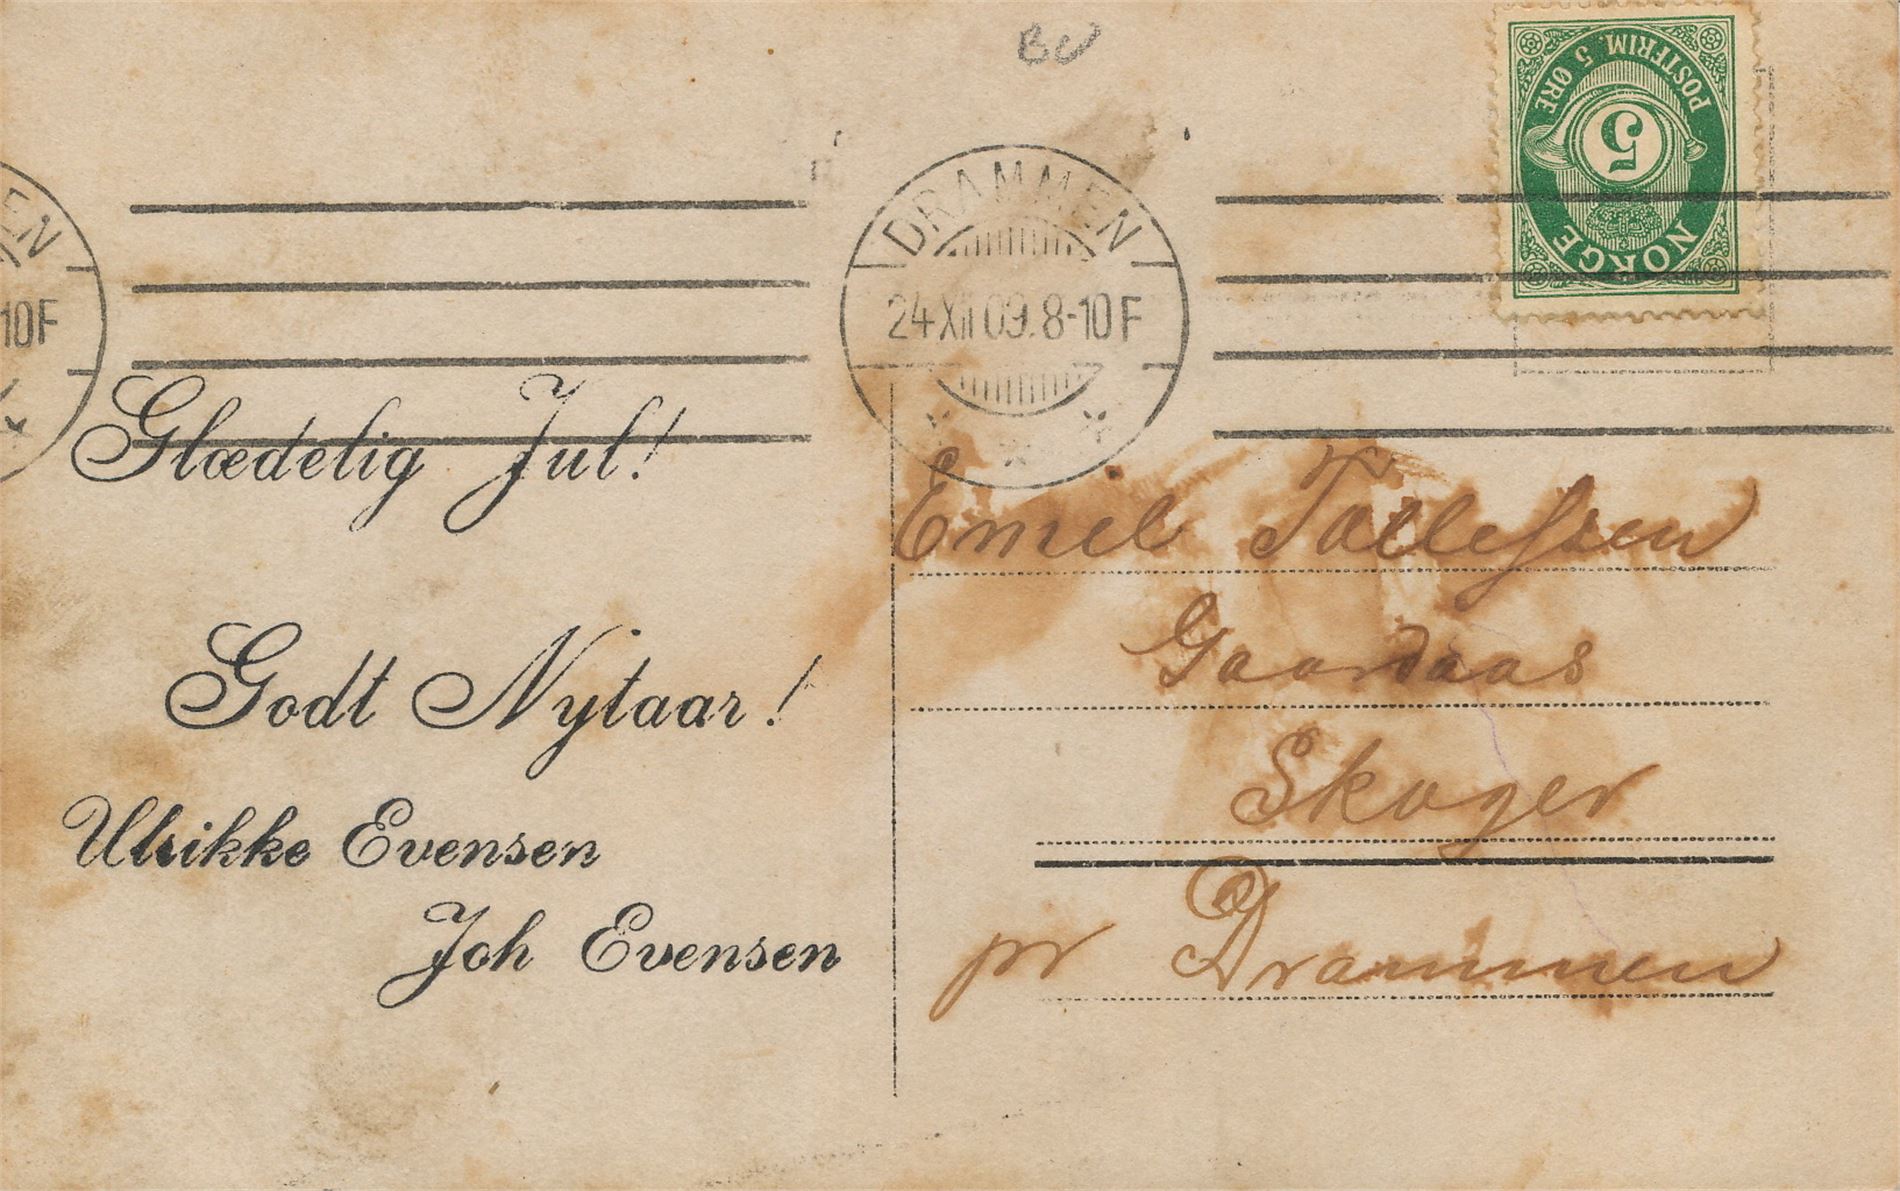 BV
POSTFRIM. 5 ØRE
5
NORGE
EN
10F
DRAMMEN
24 XII 09. 8-10 F
Glædelig Jul!
Godt Nytaar!
Ulrikke Evensen
Joh Evensen
Emil Tollefsen
Gaardaas
Skoger
pr Drammen